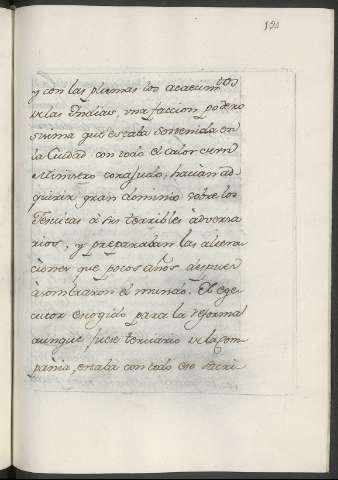 190
y con las plumas los acaecim.tos
de las Indias, una faccion podero
sisima que estaba sostenida en
la Ciudad con todo el calor de un
Ministro corajudo, hacian ad
quirir gran dominio sobre los
Jesuitas à sus terribles àdversa
rios, y preparaban las altera
ciones que pocos años despues
àsombraron el mundo. El ege
cutor escogido para la reforma
aunque fuese terciario de la Com
pañia, estaba con todo eso sacri